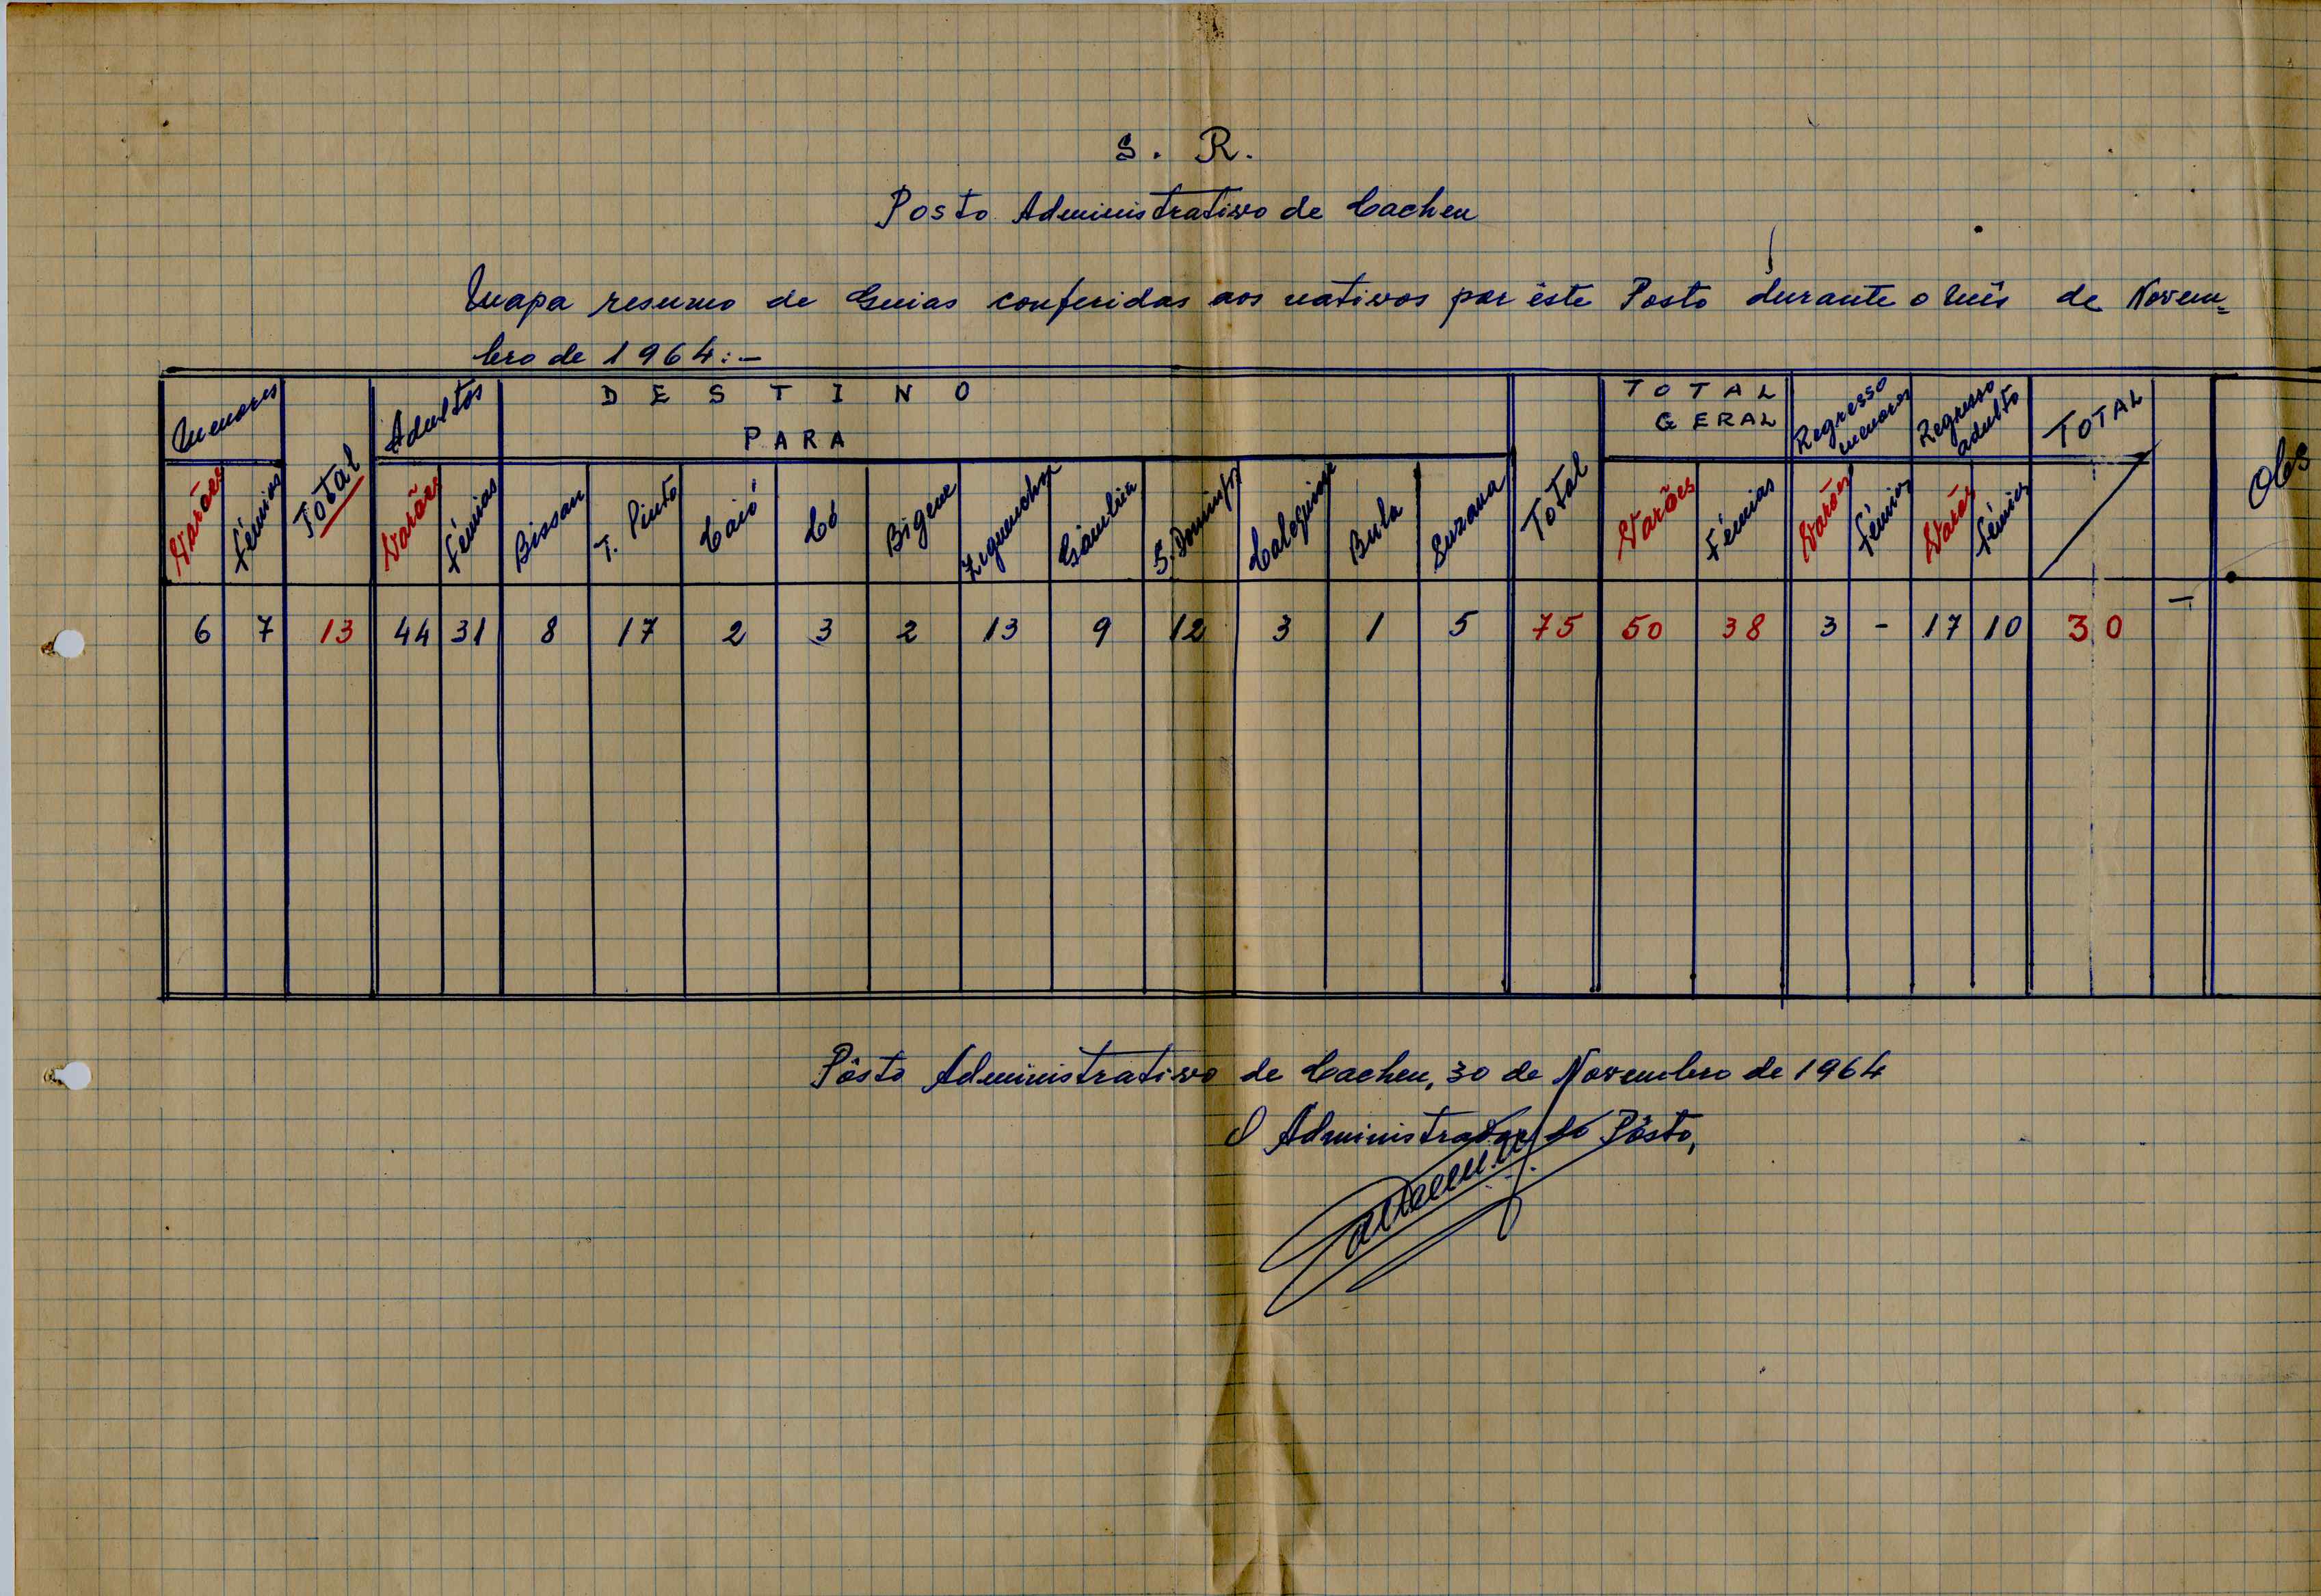 S. R.
Posto Administrativo de Cacheu
Mapa resumo de Guias conferidas aos nativos por êste Posto durante o mês de Novem=
bro de 1964:-
Menores Total Adultos DESTINO PARA Total TOTAL GERAL Regresso menores Regresso adulto TOTAL Obs
Varões Fémias Varões Fémias Bissau T. Pinto Caió Có Bigene Ziguenchor Gâmbia S. Domingos Calequisse Bula Suzana Varões Fémias Varões Fémias Varões Fémias
6 7 13 44 31 8 17 2 3 2 13 9 12 3 1 5 75 50 38 3 - 17 10 30 -
Pôsto Administrativo de Cacheu, 30 de Novembro de 1964
O Administrador do Pôsto,